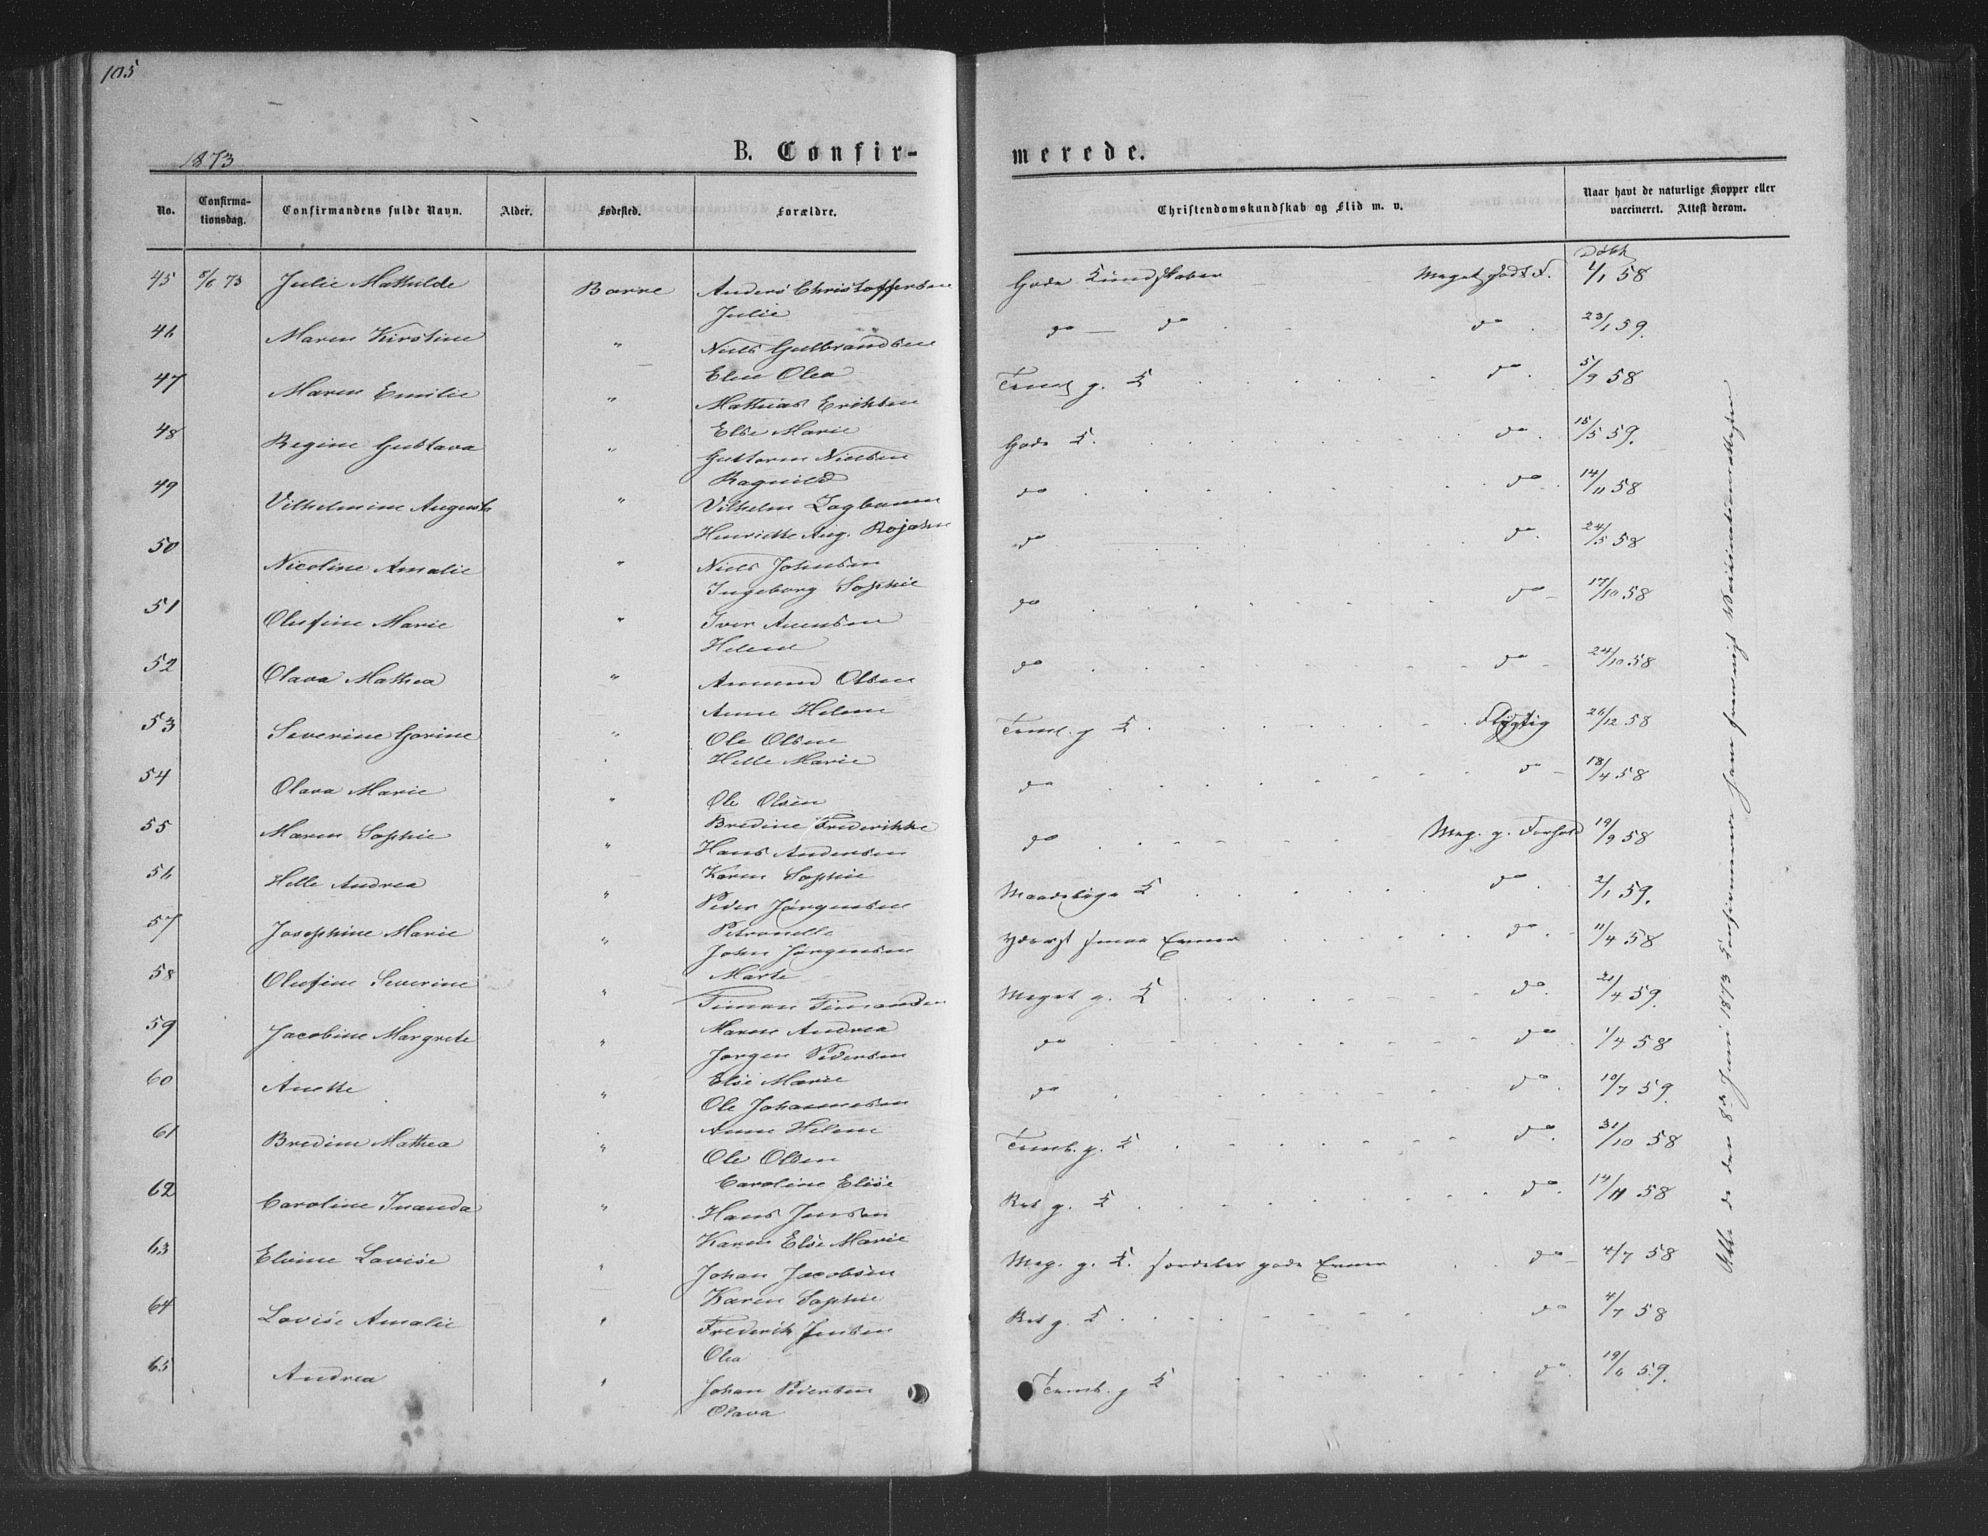 105
1873
B. Confir-
merede.
No. Confirma-tionsdag. Confirmandens fulde Navn. Alder. Fødested. Forældre. Christendomskundskab og Flid m. v. Naar havt de naturlige Kopper eller vaccineret. Attest derom.
Døbt
45 8/6 73 Julie Mathilde Borre Anders Christoffersen Gode Kundskaber Meget godt F. 4/1 58
Julie
46 Maren Kirstine " Niels Gulbrandsen do — do do 23/1 59.
Eline Olea
47 Maren Emilie " Mathias Eriksen g. K do. 5/9 58
Else Marie
48 Regine Gustava " Guttorm Nielsen Gode K. do. 15/5 59.
Ragnild
49 Vilhelmine Augusta " Vilhelm do do 14/11 58
Henriette Aug. Rojahn
50 Nicoline Amalie " Niels Johnsen do do. 24/5 58
Ingeborg Sophie
51 Olufine Marie " Iver Amundsen do do 17/10 58
Helene
52 Olava Mathea " Amund Olsen do do 24/10 58
Anne Helene
53 Severine Gorine " Ole Olsen Teml. g K. Flygtig 26/12 58
Helle Marie
54 Olava Marie " Ole Olsen do do 18/4 58
Bredine Frederikke
55 Maren Sophie " Hans Andersen do Meg. g. Forhold 19/9 58
Karen Sophie
56 Helle Andrea " Peder Jørgensen Maadelige K do 2/1 59.
Petronelle
57 Josephine Marie " John Jørgensen yderst smaa Evner do. 11/4 58
Marte
58 Olufine Severine " Timan Meget g. K do. 21/4 59.
Maren Andrea
59 Jacobine Margrete " Jørgen Pedersen do do 1/4 58
Else Marie
60 Anette " Ole Johannesen do do. 10/7 59.
Anne Helene
61 Bredine Mathea " Ole Olsen g. K do. 31/10 58
Caroline Elise
62 Caroline " Hans Jensen Ret g. K. do. 14/11 58
Karen Else Marie
63 Elvine Lovise " Johan Jacobsen Meg. g. K. særdeles gode Evner do 4/7 58
Karen Sophie
64 Lovise Amalie " Frederik Jensen Ret g. K. do 4/7 58
Olea
65 Andrea " Johan Pedersen g K do. 19/6 59.
Olava
Alle de den 8de Juni 1873 Confirmerede have fremvist Vaccinationsattester